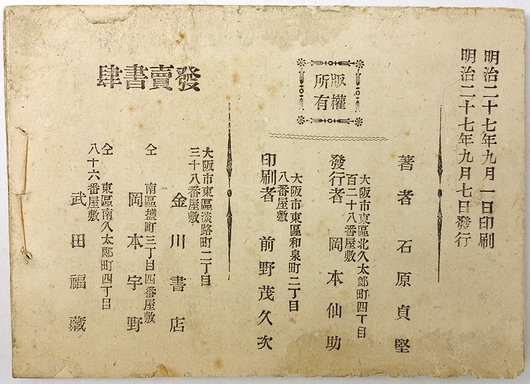 明治二十七年九月一日印刷
明治二十七年九月七日發行
版權
所有
著者 石原貞堅
大阪市東區北久太郎町四丁目
百二十八番屋敷
發行者 岡本仙助
大阪市東區和泉町二丁目
八番屋敷
印刷者 前野茂久次
發賣書肆
大阪市東區淡路町二丁目
三十八番屋敷
金川書店
仝 南區鹽町三丁目四番屋敷
岡本宇野
仝 東區南久太郎町四丁目
八十六番屋敷
武田福藏